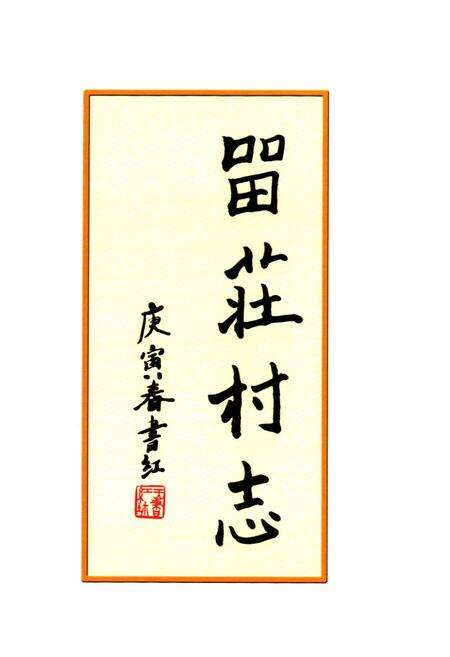 畱莊村志
庚寅春書红